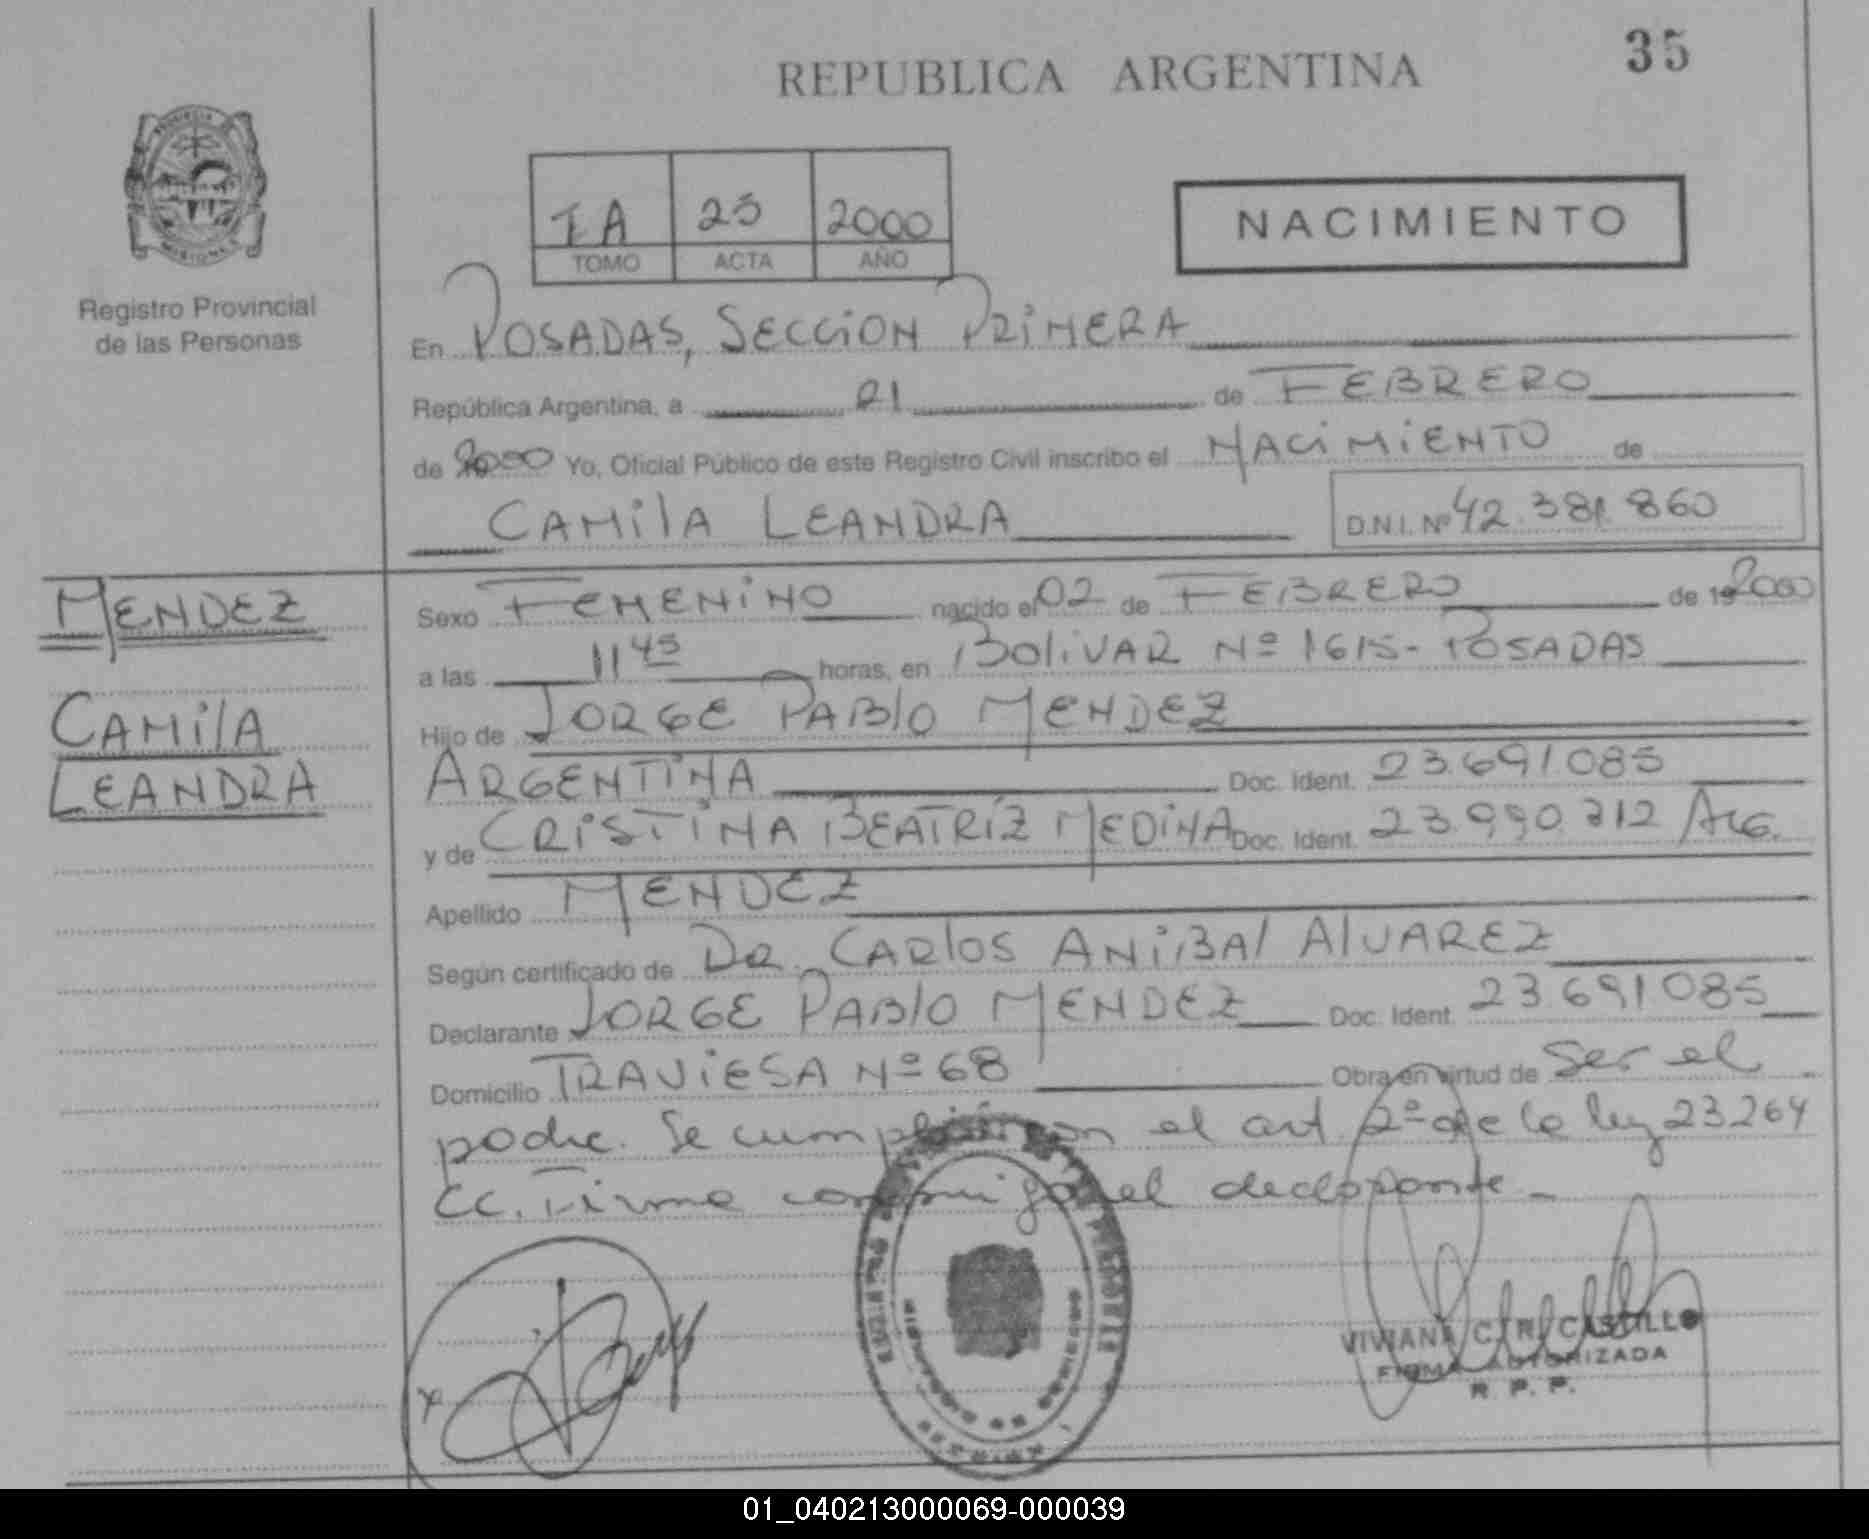 REPUBLICA ARGENTINA
35
Registro Provincial
de las Personas
IA 25 2000
TOMO ACTA AÑO
NACIMIENTO
En POSADAS, SECCION PRIMERA
República Argentina, a 21 de FEBRERO
de 2000 Yo, Oficial Público de este Registro Civil inscribo el NACIMIENTO de
CAMILA LEANDRA D.N.I. Nº 42.381.860
MENDEZ
CAMILA
LEANDRA
Sexo FEMENINO nacido el 02 de FEBRERO de 19 2000
a las 11 45 horas, en BOLIVAR Nº 1615 - POSADAS
Hijo de JORGE PABLO MENDEZ
ARGENTINA Doc. Ident. 23.691.085
y de CRISTINA BEATRIZ MEDINA Doc. Ident. 23.990.312 ARG.
Apellido MENDEZ
Según certificado de DR. CARLOS ANIBAL ALVAREZ
Declarante JORGE PABLO MENDEZ Doc. Ident. 23.691.085
Domicilio TRAVIESA Nº 68 Obra en virtud de Ser el
padre. Se cumplió con el art. 2º de la ley 23264
CC. Firma conmigo el declarante.-
VIVIANA C. R. CASTILLO
FIRMA AUTORIZADA
R. P. P.
01_040213000069-000039